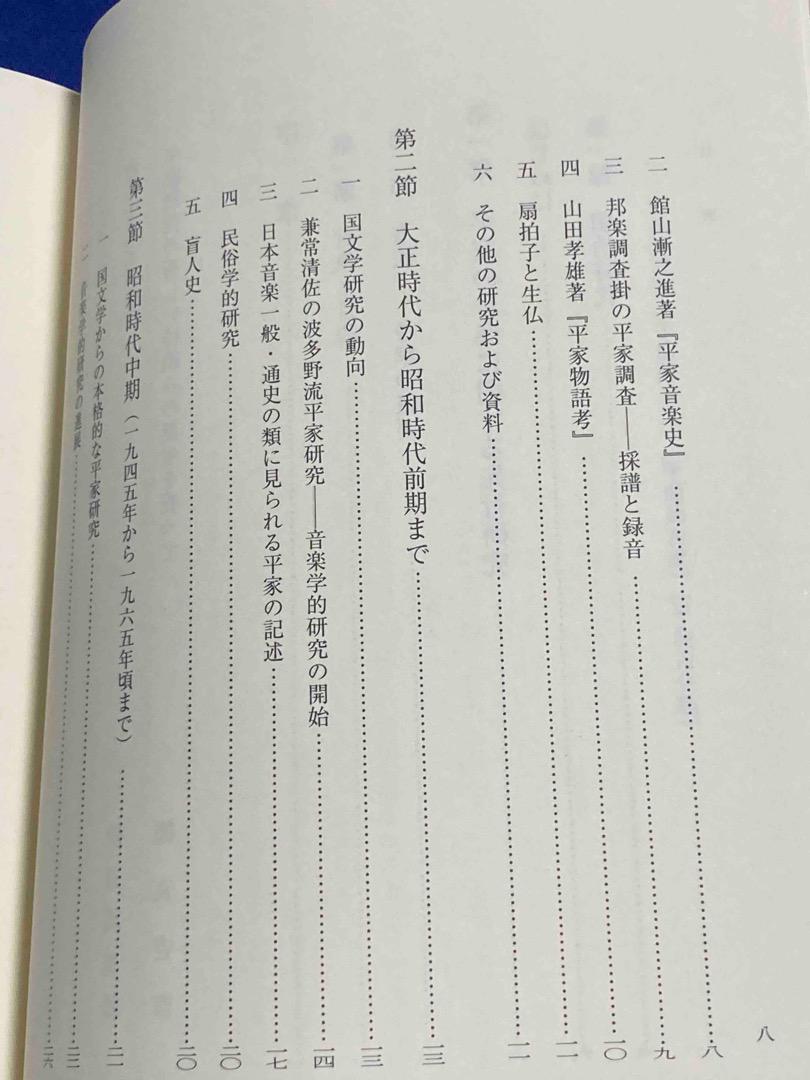 八
二 館山漸之進著『平家音楽史』……八
三 邦楽調査掛の平家調査――採譜と録音……九
四 山田孝雄著『平家物語考』……一〇
五 扇拍子と生仏……一一
六 その他の研究および資料……一一
第二節 大正時代から昭和時代前期まで……一三
一 国文学研究の動向……一三
二 兼常清佐の波多野流平家研究――音楽学的研究の開始……一四
三 日本音楽一般・通史の類に見られる平家の記述……一七
四 民俗学的研究……二〇
五 盲人史……二〇
第三節 昭和時代中期(一九四五年から一九六五年頃まで)……二一
一 国文学からの本格的な平家研究……二二
二 音楽学的研究の進展……二六